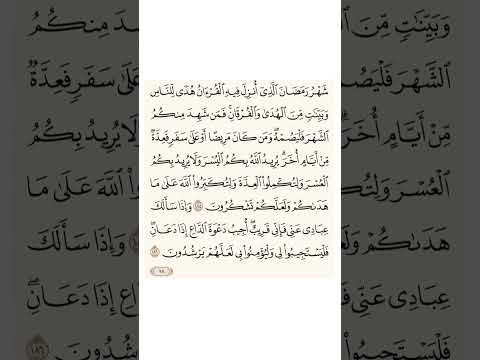 شَهْرُ رَمَضَانَ ٱلَّذِىٓ أُنزِلَ فِيهِ ٱلْقُرْءَانُ هُدًى لِّلنَّاسِ
وَبَيِّنَٰتٍ مِّنَ ٱلْهُدَىٰ وَٱلْفُرْقَانِۚ فَمَن شَهِدَ مِنكُمُ
ٱلشَّهْرَ فَلْيَصُمْهُۖ وَمَن كَانَ مَرِيضًا أَوْ عَلَىٰ سَفَرٍ فَعِدَّةٌ
مِّنْ أَيَّامٍ أُخَرَۗ يُرِيدُ ٱللَّهُ بِكُمُ ٱلْيُسْرَ وَلَا يُرِيدُ بِكُمُ
ٱلْعُسْرَ وَلِتُكْمِلُوا۟ ٱلْعِدَّةَ وَلِتُكَبِّرُوا۟ ٱللَّهَ عَلَىٰ مَا
هَدَىٰكُمْ وَلَعَلَّكُمْ تَشْكُرُونَ ١٨٥ وَإِذَا سَأَلَكَ
عِبَادِى عَنِّى فَإِنِّى قَرِيبٌۖ أُجِيبُ دَعْوَةَ ٱلدَّاعِ إِذَا دَعَانِۖ
فَلْيَسْتَجِيبُوا۟ لِى وَلْيُؤْمِنُوا۟ بِى لَعَلَّهُمْ يَرْشُدُونَ ١٨٦